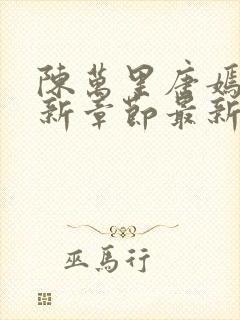 陳萬里唐嫣
新章節最新
巫馬行